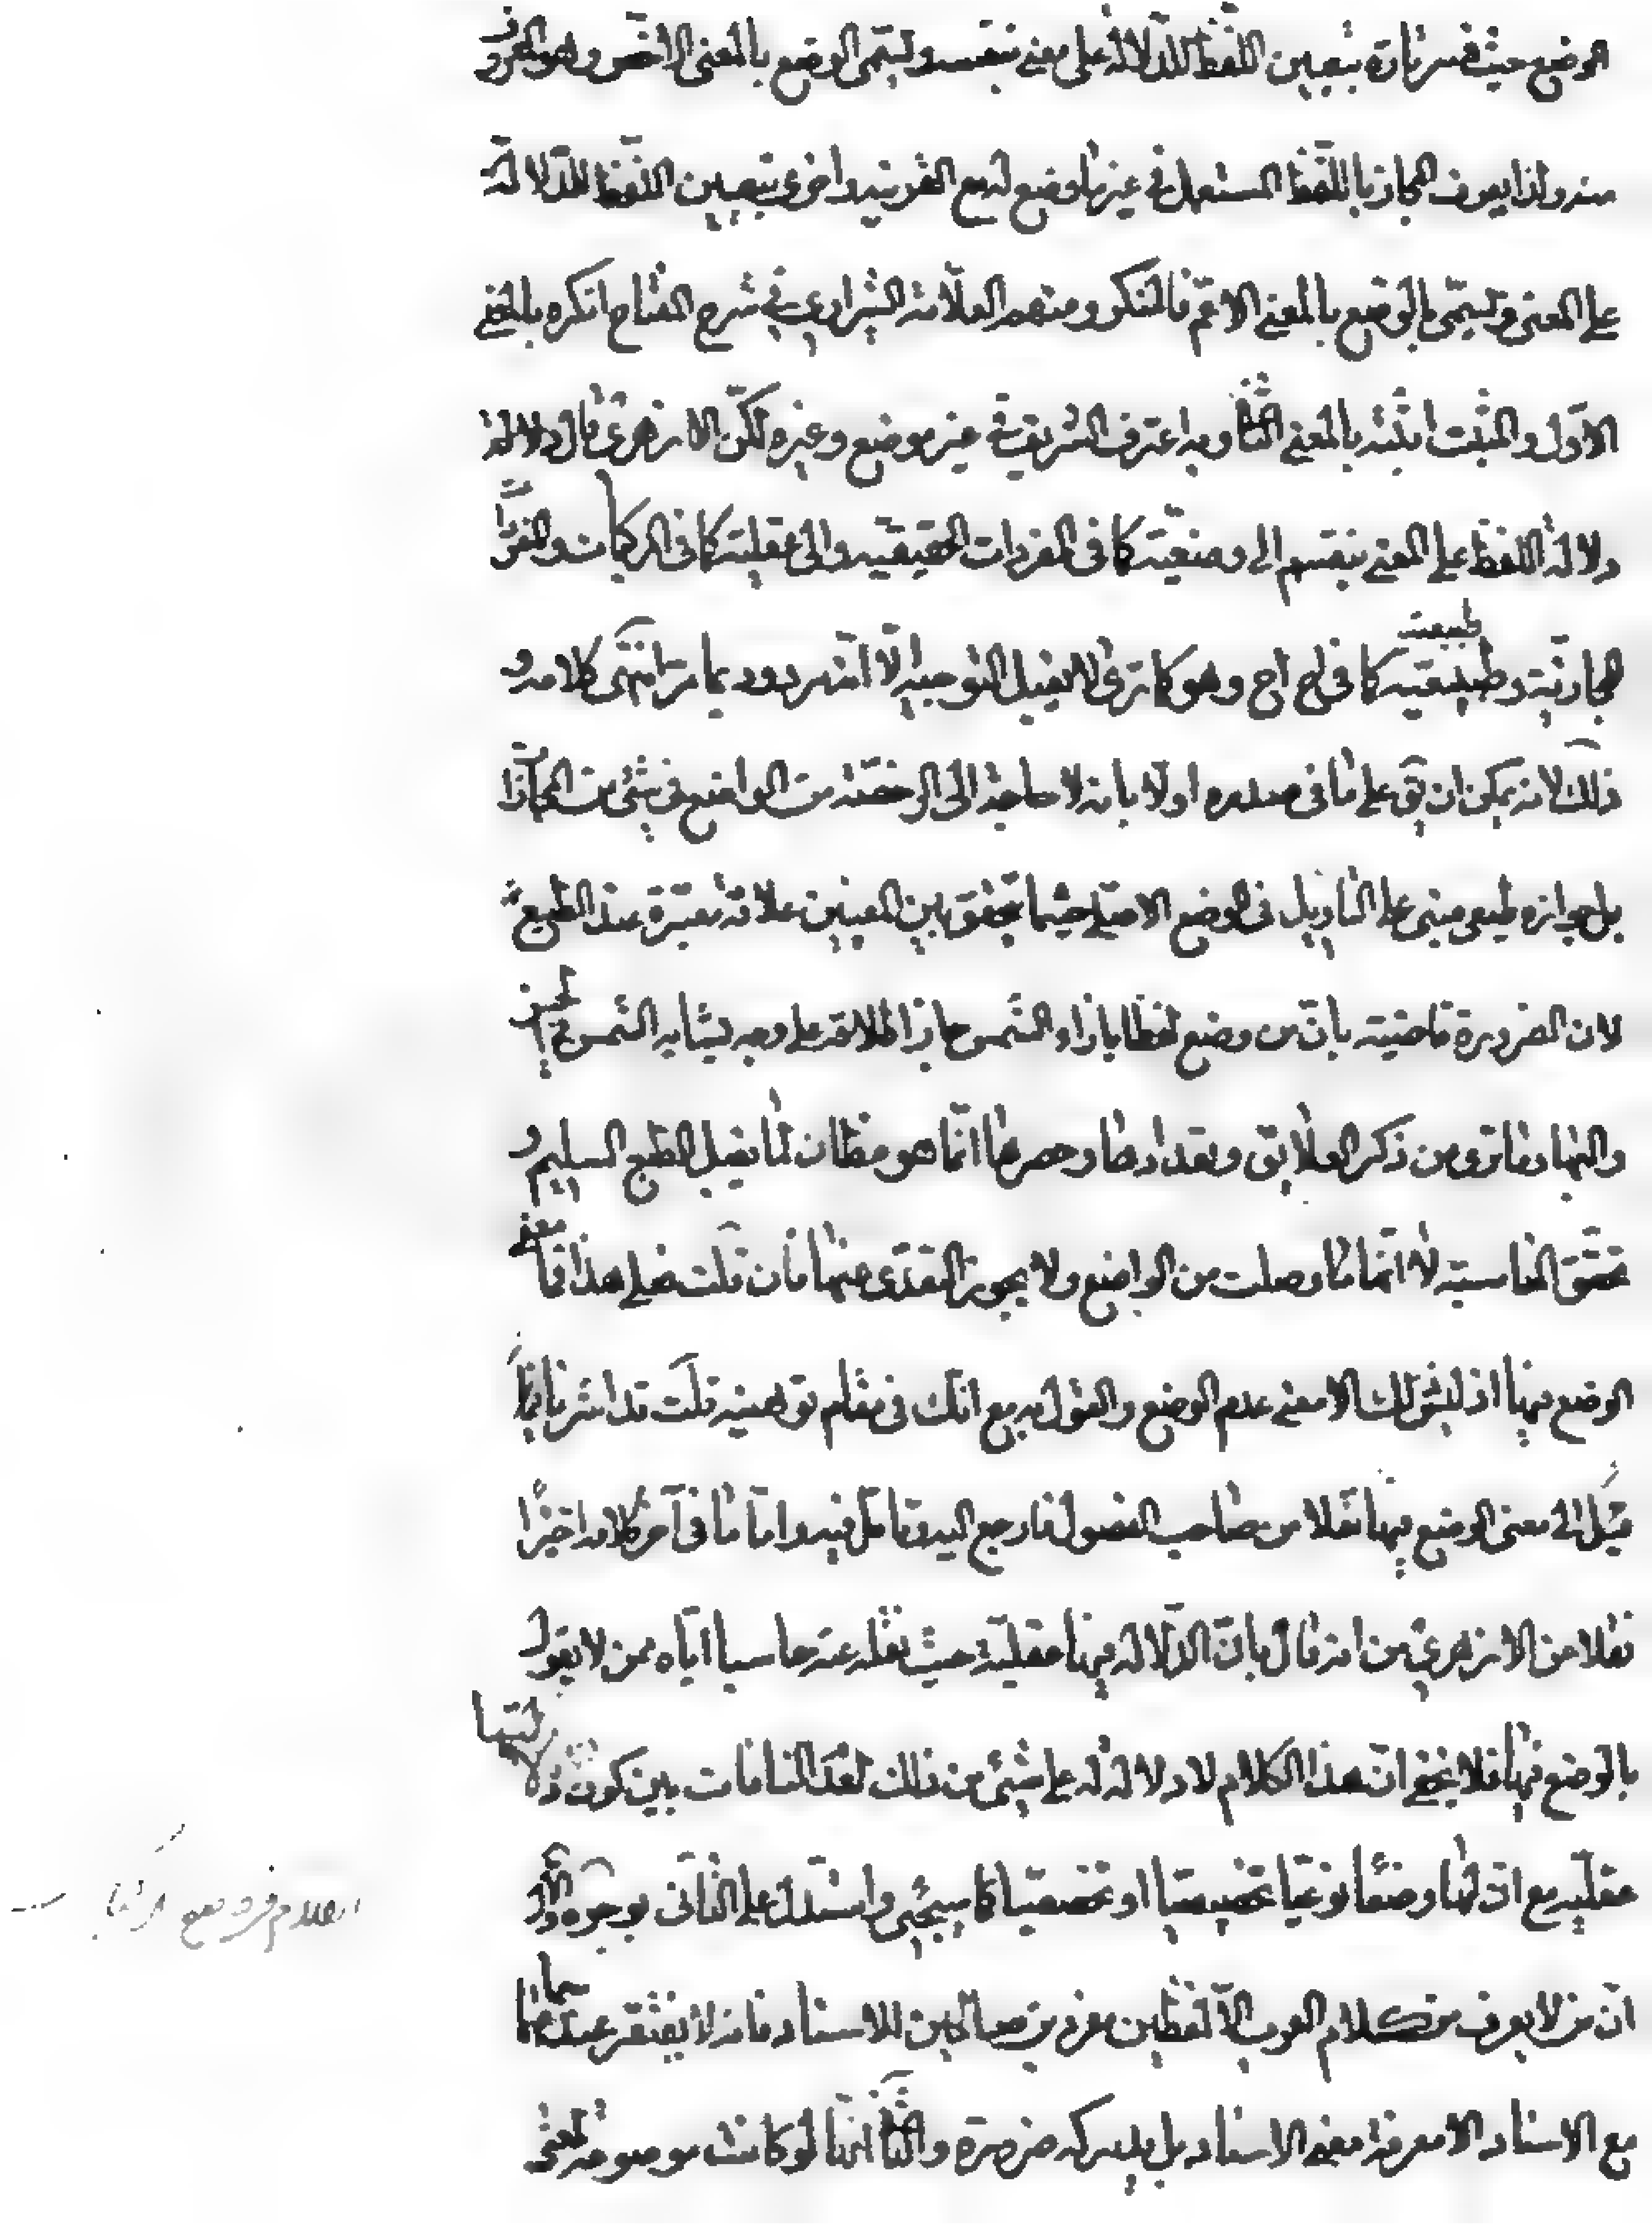 الوضع حيث فسر تارة بتعيين اللفظ للدلالة على معنى بنفسه ويسمى الوضع بالمعنى الأخص وهو المعروف
منه ولذا يعرف المجاز باللفظ المستعمل في غير ما وضع له مع القرينة واخرى بتعيين اللفظ للدلالة
على المعنى ويسمى بالوضع بالمعنى الاعم فالمنكر ومنهم العلامة الشيرازي في شرح المفتاح انكره بالمعنى
الاول والمثبت اثبته بالمعنى الثاني وبه اعترف الشريف في غير موضع وغيره لكن الازهري قال دلالة
دلالة اللفظ على المعنى ينقسم الى وضعية كما في المفردات الحقيقية والى عقلية كما في المركبات والمفردات
المجازية وطبيعية كما في اح اح وهو كما ترى لا يقبل التوجيه الّا انه مردود بما مر انتهى كلامه و
طبيعية
ذلك لانه يمكن ان يق على ما في صدره اولا بانه لا حاجة الى الرخصة من الواضع في شئ من المجازات
بل جوازه طبعي مبني على التاويل في الوضع الاصلي حيثما تحقق بين المعنيين علاقة معتبرة عند الطبع
لان الضرورة قاضية بان من وضع لفظا بازاء الشمس جاز اطلاقه على وجه يشابه الشمس في الحسن
والبهاء وما ترى من ذكر العلايق وتعدادها وحصرها انما هو مظان لما يقبل الطبع السليم و
تحقق المناسبة لا انها ما وصلت من الواضع ولا يجوز التعدى عنها فان قلت فعلى هذا فما معنى
الوضع فيها اذ ليس ذلك الا معنى عدم الوضع والقول به مع انك في مقام توهينه قلت قد اشرنا انفا
قبيل الى معنى الوضع فيها نقلا من صاحب الفصول فارجع اليه وتامل فيه واما ما في آخر كلامه اخيرا
نقلا من الازهري من انه قال بان الدلالة فيها عقلية حيث نقله عنه حاسبا اياه ممن لا يقول
بالوضع فيها فلا يخفى ان هذا الكلام لا دلالة له على شئ من ذلك لعدم المنافات بين كون دلالتها
عقلية مع ان لها وضعا نوعيا تخصيصيا او تخصصيا كما سيجئ واستدل على الثاني بوجوه الاول
ان من لا يعرف من كلام العرب الّا لفظين مفردين صالحين للاسناد فانه لا يفتقر عند سماعهما
مع الاسناد الا معرفة معنى الاسناد بل يدركه ضرورة والثاني انها لو كانت موضوعة لمعنى